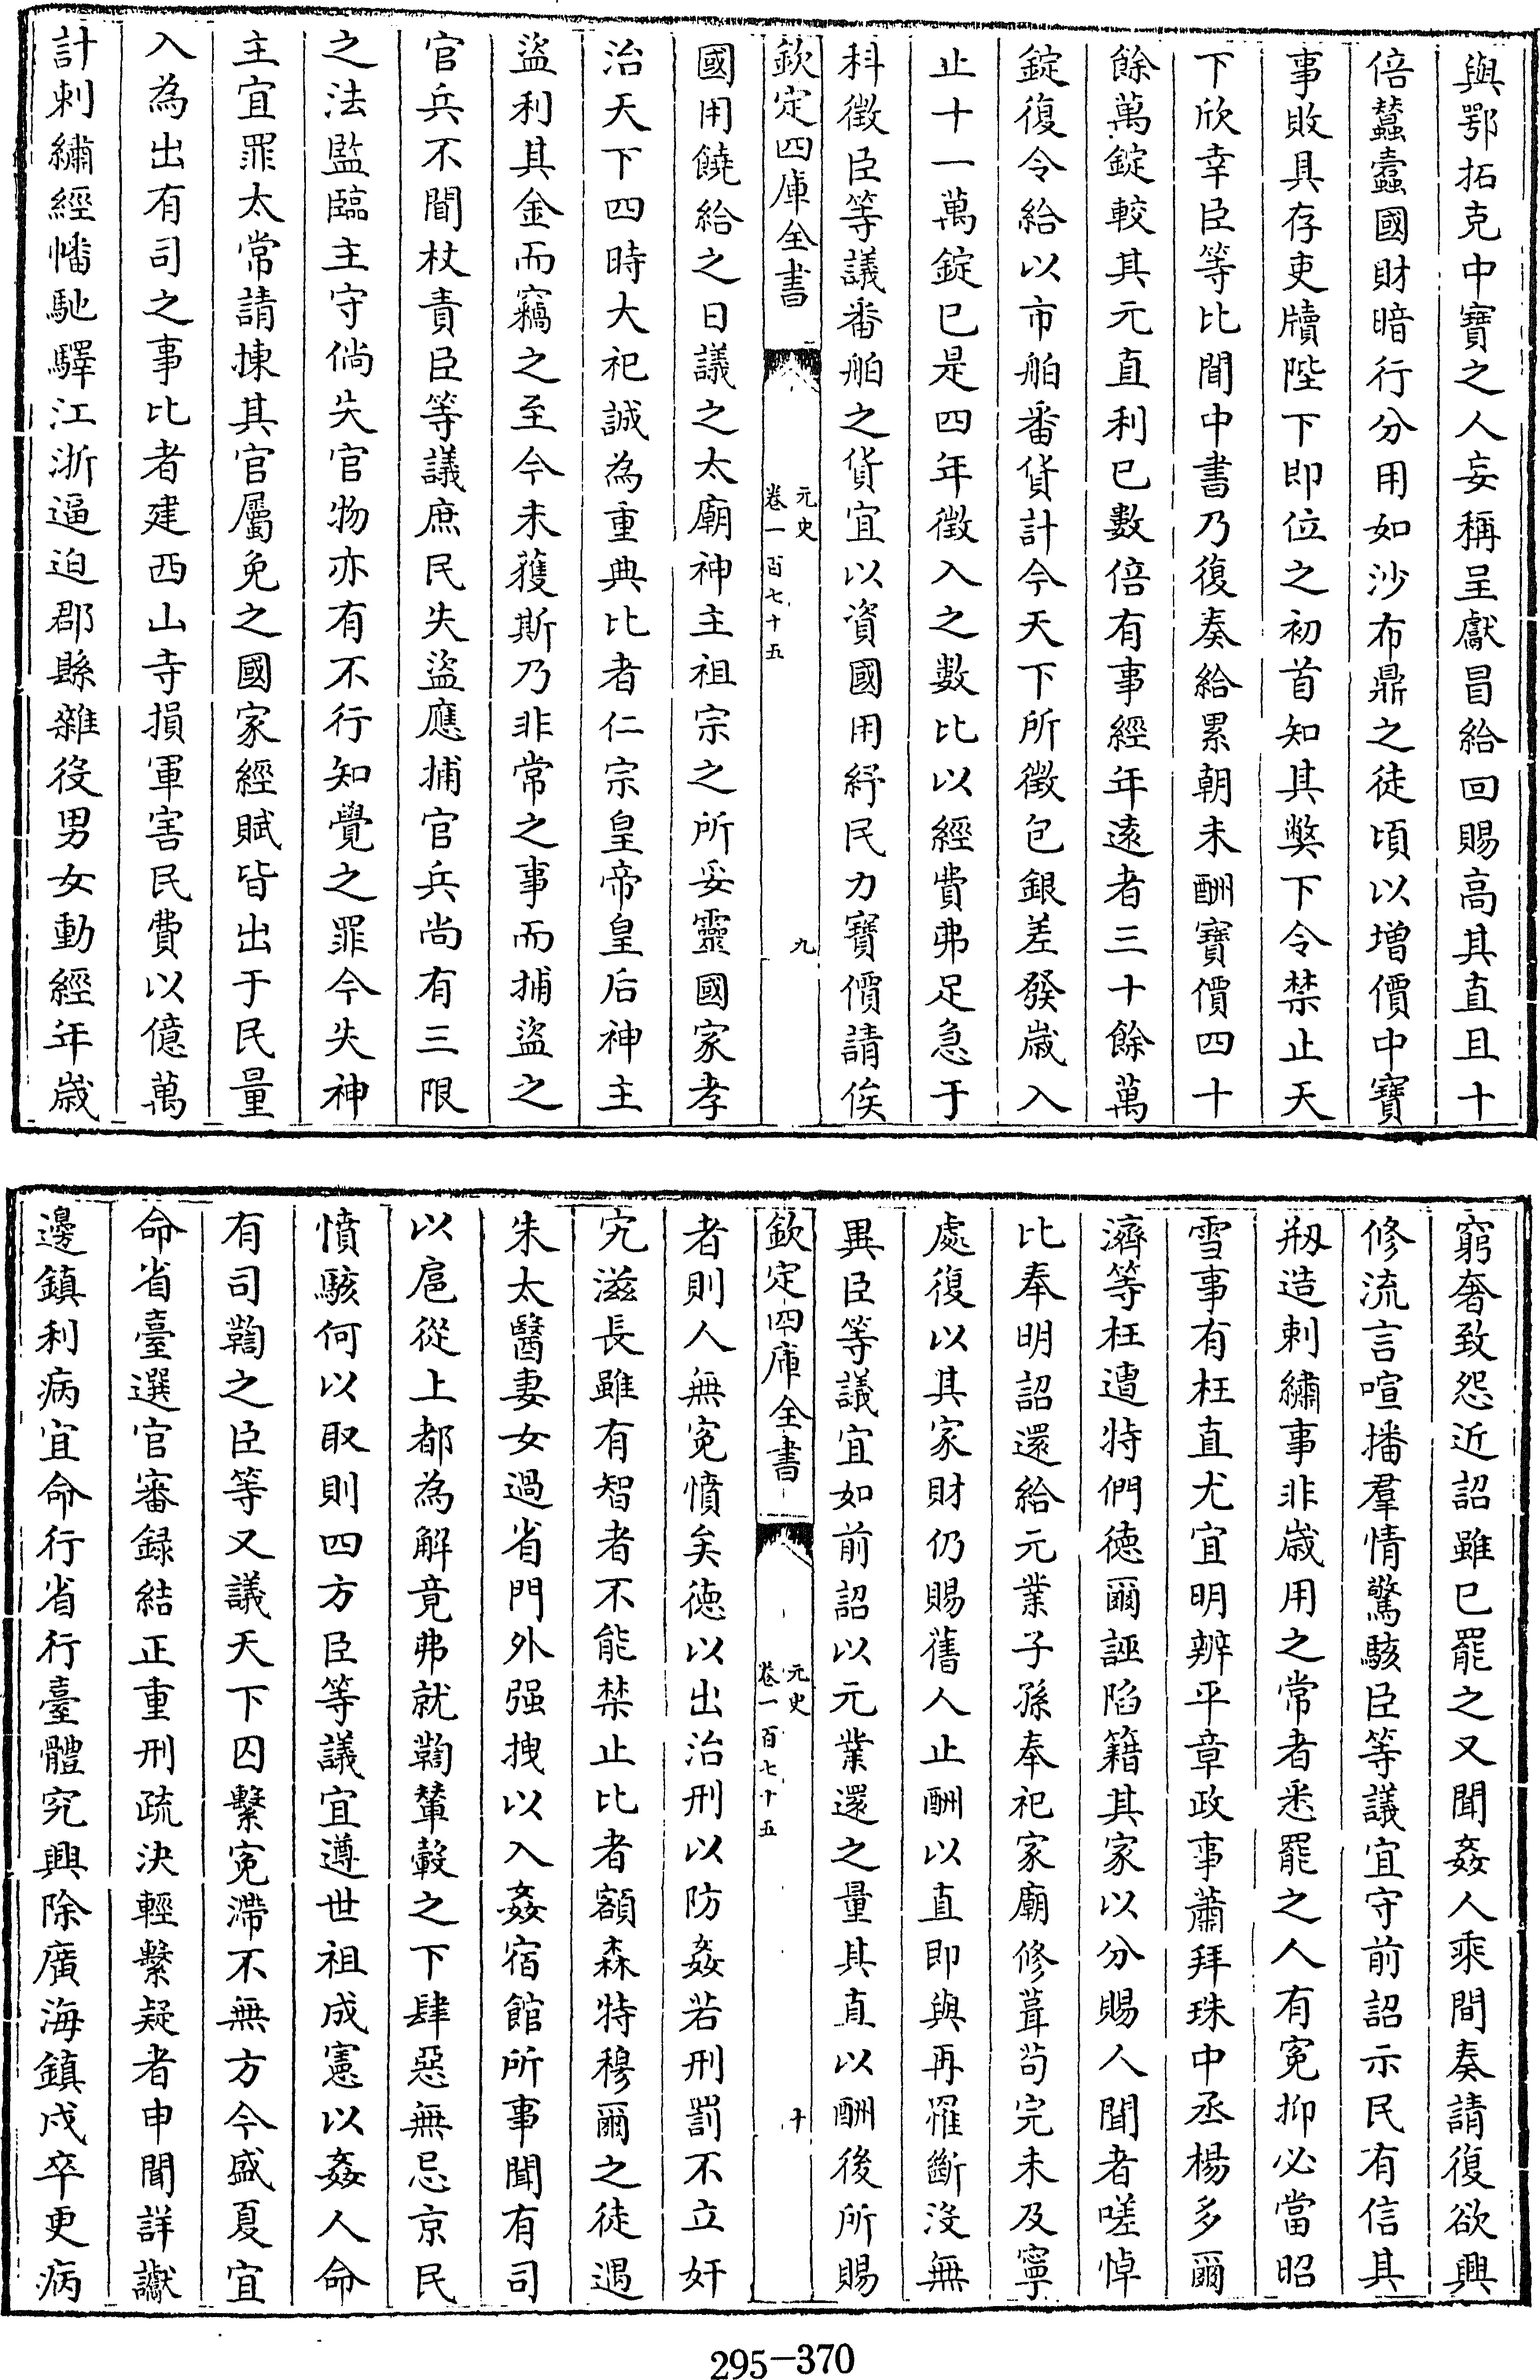 與鄂拓克中寶之人妄稱呈獻冒給回賜高其直且十
倍蠶蠹國財暗行分用如沙布鼎之徒頃以增價中寶
事敗具存吏牘陛下即位之初首知其弊下令禁止天
下欣幸臣等比聞中書乃復奏給累朝未酬寶價四十
餘萬錠較其元直利已數倍有事經年遠者三十餘萬
錠復令給以市舶番貨計今天下所徵包銀差發歲入
止十一萬錠已是四年徵入之數比以經費弗足急于
科徵臣等議番舶之貨宜以資國用紓民力寶價請俟
欽定四庫全書
元史
卷一百七十五
九
國用饒給之日議之太廟神主祖宗之所妥靈國家孝
治天下四時大祀誠為重典比者仁宗皇帝皇后神主
盜利其金而竊之至今未獲斯乃非常之事而捕盜之
官兵不聞杖責臣等議庶民失盜應捕官兵尚有三限
之法監臨主守倘失官物亦有不行知覺之罪今失神
主宜罪太常請揀其官屬免之國家經賦皆出于民量
入為出有司之事比者建西山寺損軍害民費以億萬
計刺繡經幡馳驛江浙逼迫郡縣雜役男女動經年歲
窮奢致怨近詔雖已罷之又聞姦人乘間奏請復欲興
修流言喧播羣情驚駭臣等議宜守前詔示民有信其
剏造刺繡事非歲用之常者悉罷之人有寃抑必當昭
雪事有枉直尤宜明辨平章政事蕭拜珠中丞楊多爾
濟等枉遭特們德爾誣陷籍其家以分賜人聞者嗟悼
比奉明詔還給元業子孫奉祀家廟修葺茍完未及寧
處復以其家財仍賜舊人止酬以直即與再罹斷沒無
異臣等議宜如前詔以元業還之量其直以酬後所賜
欽定四庫全書
元史
卷一百七十五
十
者則人無寃憤矣德以出治刑以防姦若刑罰不立奸
宄滋長雖有智者不能禁止比者額森特穆爾之徒遇
朱太醫妻女過省門外强拽以入姦宿館所事聞有司
以扈從上都為解竟弗就鞫輦轂之下肆惡無忌京民
憤駭何以取則四方臣等議宜遵世祖成憲以姦人命
有司鞫之臣等又議天下囚繫寃滯不無方今盛夏宜
命省臺選官審録結正重刑疏決輕繫疑者申聞詳讞
邊鎮利病宜命行省行臺體究興除廣海鎮戍卒更病
295-370